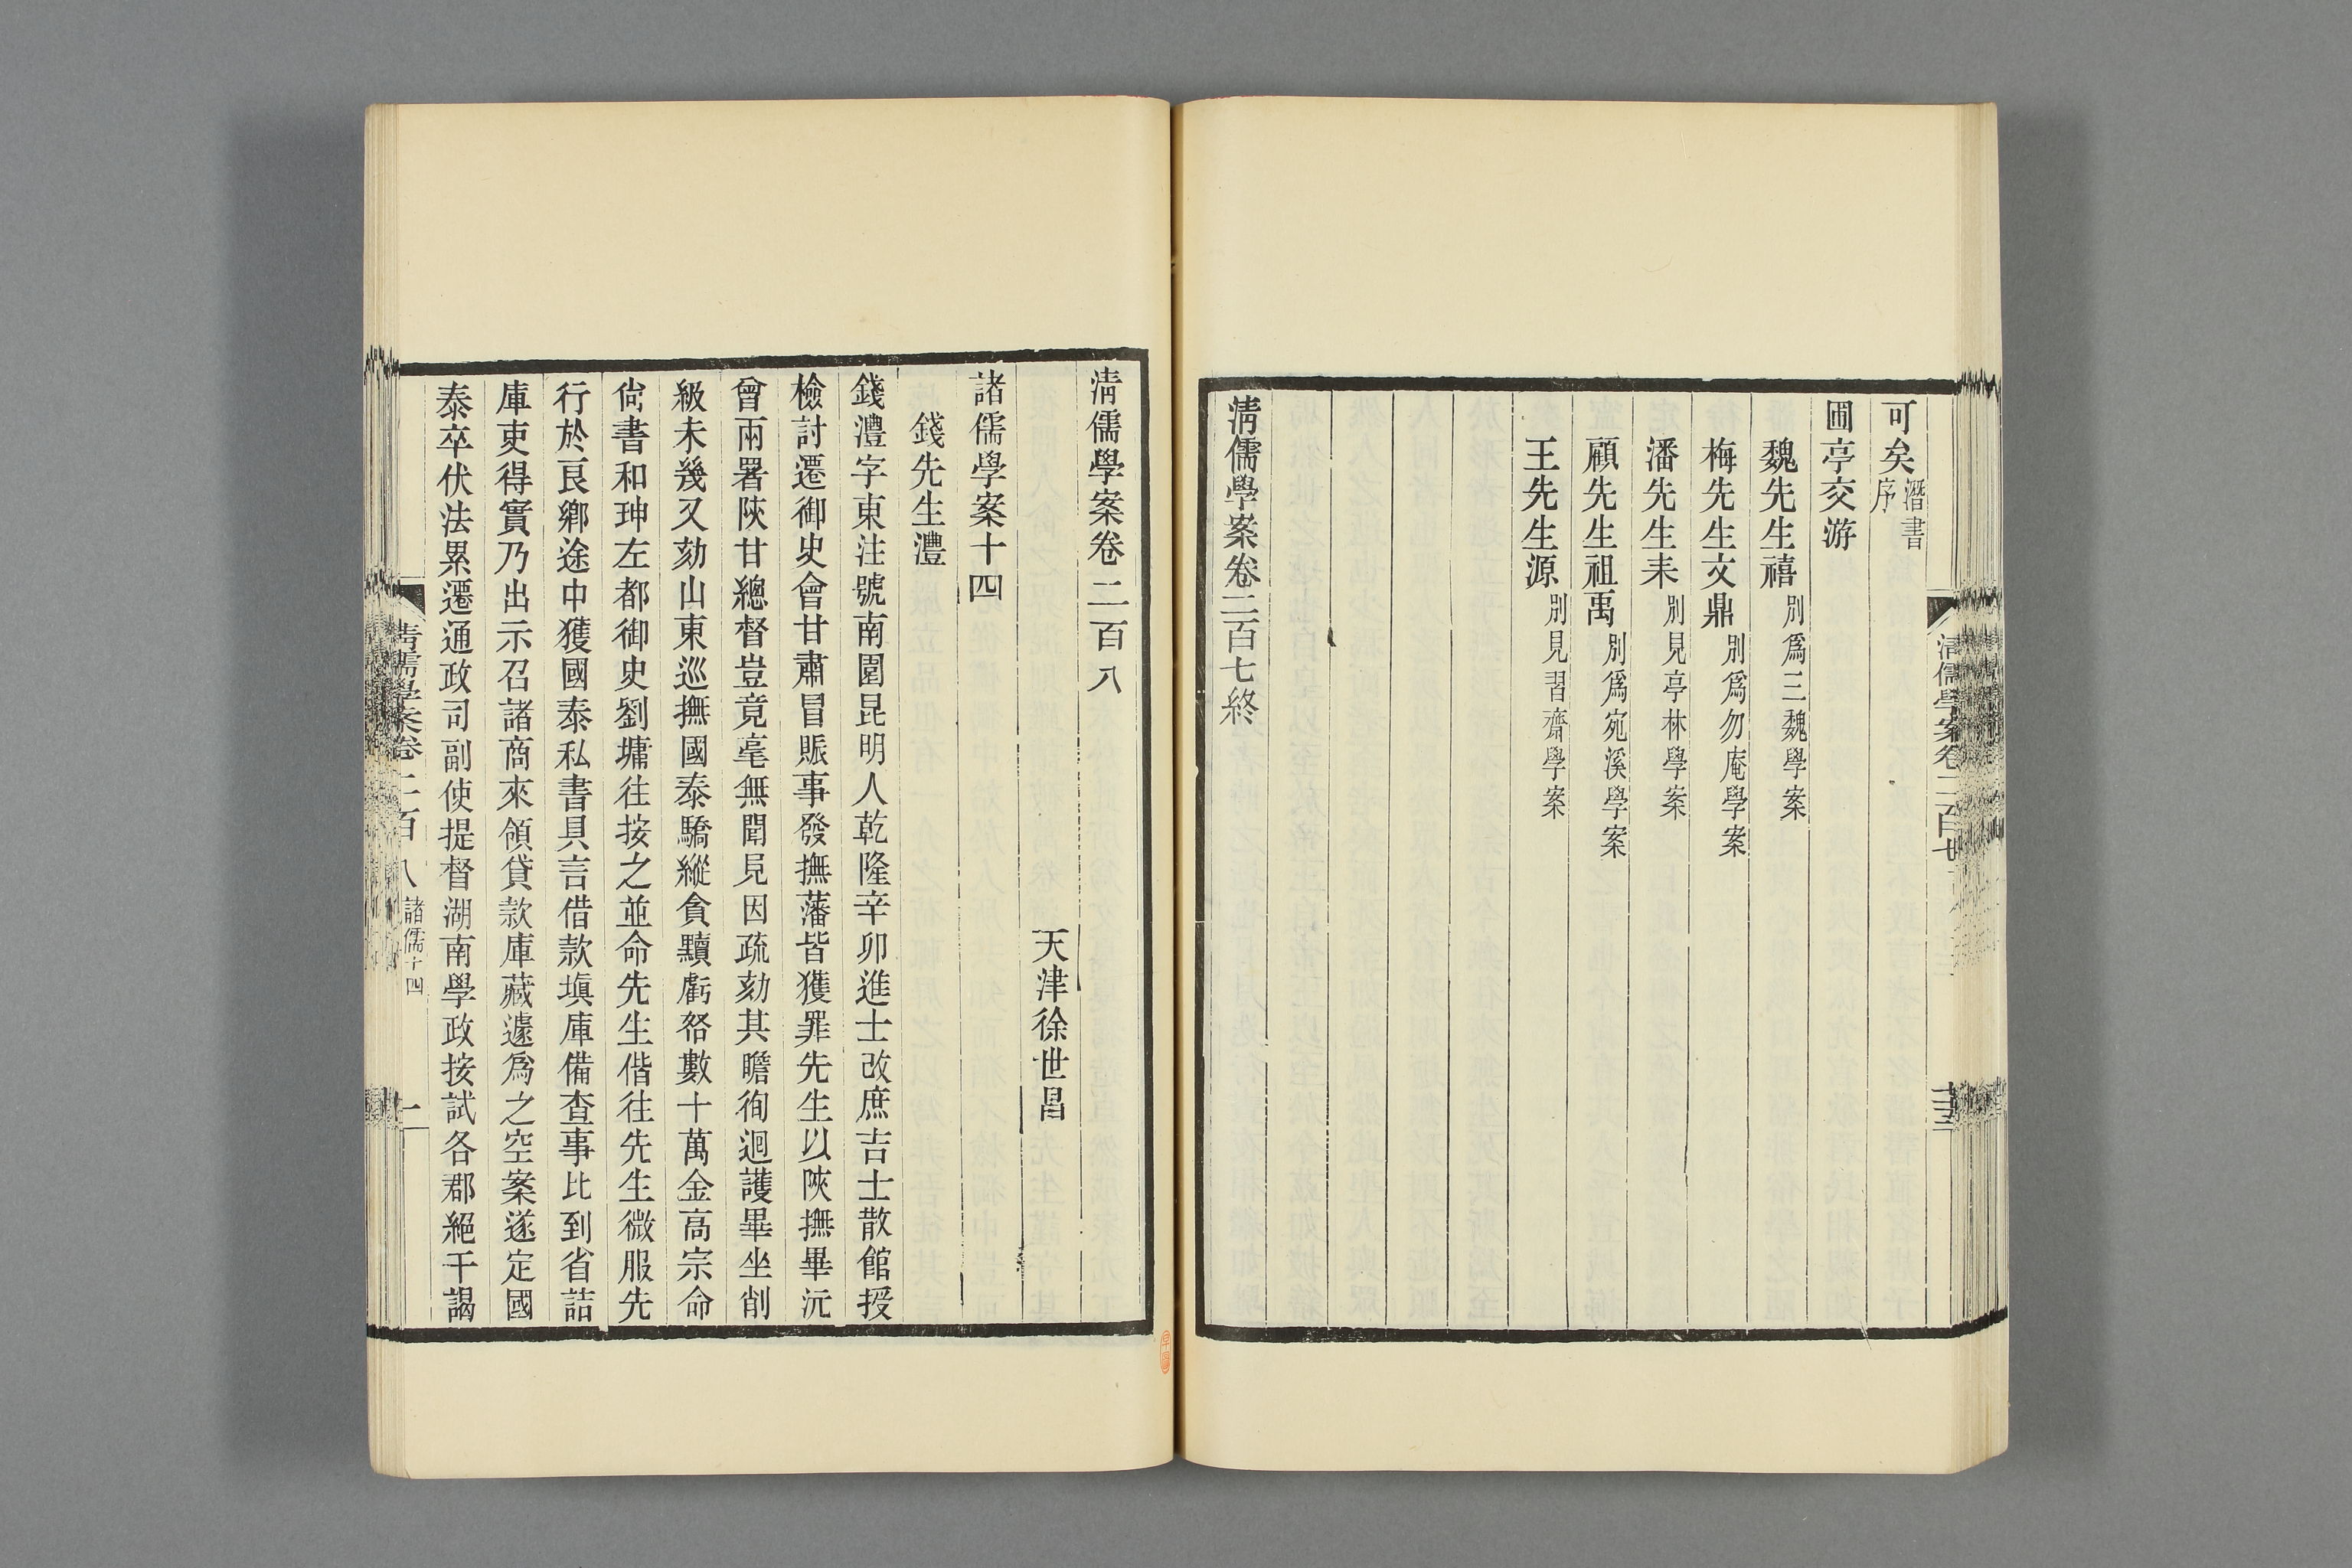 可矣潛書序
圃亭交游
魏先生禧別爲三魏學案
梅先生文鼎別爲勿庵學案
潘先生耒別見亭林學案
顧先生祖禹別爲宛溪學案
王先生源別見習齋學案
淸儒學案卷二百七終
淸儒學案卷二百七
淸儒學案卷二百八
天津徐世昌
諸儒學案十四
錢先生灃
錢灃字東注號南園昆明人乾隆辛卯進士改庶吉士散館授
檢討遷御史會甘肅冒賑事發撫藩皆獲罪先生以陝撫畢沅
曾兩署陝甘總督豈竟毫無聞見因疏劾其瞻徇迴護畢坐削
級未幾又劾山東巡撫國泰驕縱貪黷虧帑數十萬金高宗命
尙書和珅左都御史劉墉往按之並命先生偕往先生微服先
行於良鄉途中獲國泰私書具言借款塡庫備查事比到省詰
庫吏得實乃出示召諸商來領貸款庫藏遽爲之空案遂定國
泰卒伏法累遷通政司副使提督湖南學政按試各郡絕干謁
淸儒學案卷二百八 諸儒十四 一